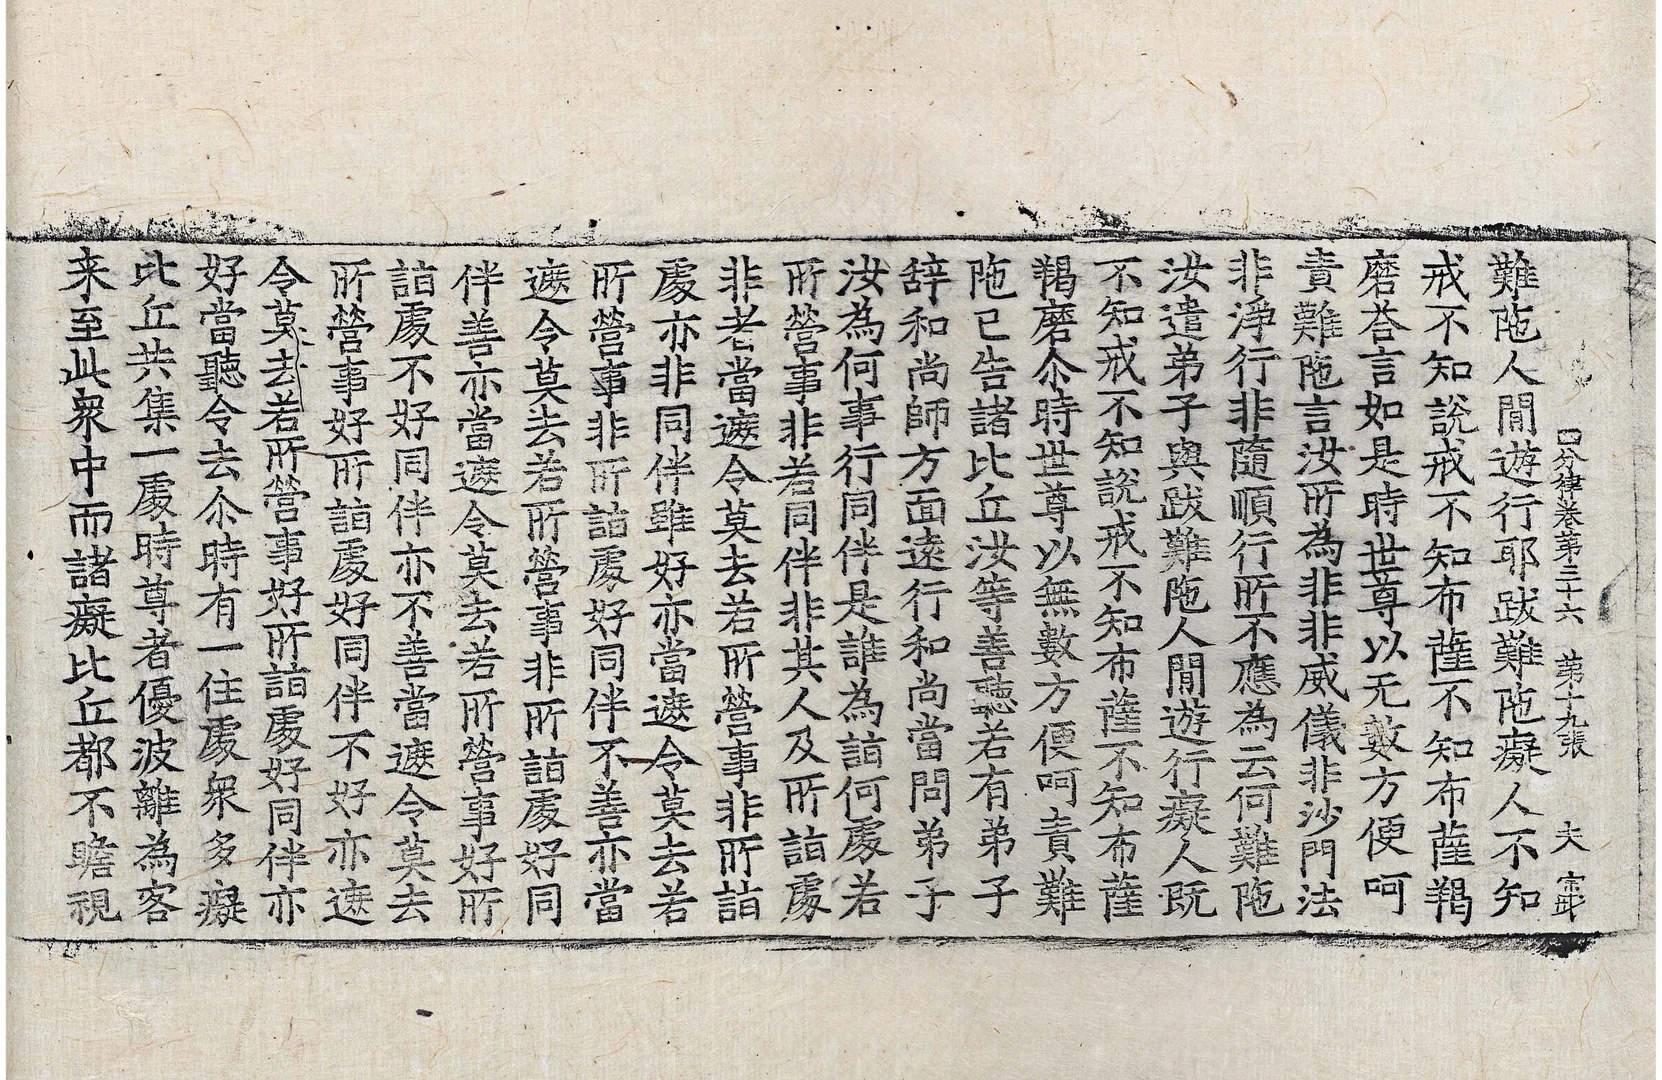 四分律卷第三十六　第十九張　夫
難陁人閒遊行耶跋難陁癡人不知
戒不知說戒不知布薩不知布薩羯
磨荅言如是時世尊以无數方便呵
責難陁言汝所為非非威儀非沙門法
非淨行非隨順行所不應為云何難陁
汝遣弟子與跋難陁人閒遊行癡人既
不知戒不知說戒不知布薩不知布薩
羯磨尒時世尊以無數方便呵責難
陁已告諸比丘汝等善聽若有弟子
辞和尚師方面遠行和尚當問弟子
汝為何事行同伴是誰為詣何處若
所營事非若同伴非其人及所詣處
非者當遮令莫去若所營事非所詣
處亦非同伴雖好亦當遮令莫去若
所營事非所詣處好同伴不善亦當
遮令莫去若所營事非所詣處好同
伴善亦當遮令莫去若所營事好所
詣處不好同伴亦不善當遮令莫去
所營事好所詣處好同伴不好亦遮
令莫去若所營事好所詣處好同伴亦
好當聽令去尒時有一住處衆多癡
比丘共集一處時尊者優波離為客
来至此衆中而諸癡比丘都不瞻視